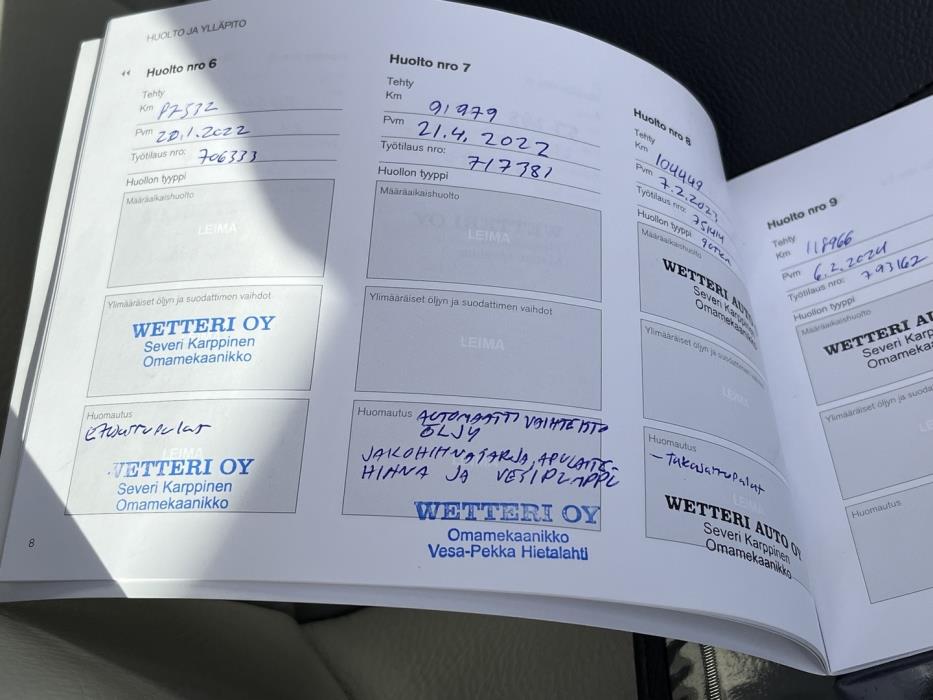 HUOLTO JA YLLÄPITO
Huolto nro 6
Tehty
Km 87532
Pvm 20.1.2022
Työtilaus nro: 706333
Huollon tyyppi
Määräaikaishuolto
LEIMA
Ylimääräiset öljyn ja suodattimen vaihdot
WETTERI OY
Severi Karppinen
Omamekaanikko
Huomautus
Etujarrupalat
WETTERI OY
Severi Karppinen
Omamekaanikko
8
Huolto nro 7
Tehty
Km 91979
Pvm 21.4.2022
Työtilaus nro: 717381
Huollon tyyppi
Määräaikaishuolto
LEIMA
Ylimääräiset öljyn ja suodattimen vaihdot
LEIMA
Huomautus AUTOMAATTI VAIHTEISTO
ÖLJY
JAKOHIHNASARJA, APULAITE-
HIHNA JA VESIPUMPPU
WETTERI OY
Omamekaanikko
Vesa-Pekka Hietalahti
Huolto nro 8
Tehty
Km 104449
Pvm 7.2.2023
Työtilaus nro: 751414
Huollon tyyppi 90TKM
Määräaikaishuolto
WETTERI AUTO
Severi Karppinen
Omamekaanikko
Ylimääräiset öljyn ja suodattimen vaihdot
LEIMA
Huomautus
- Takajarrupalat
LEIMA
WETTERI AUTO OY
Severi Karppinen
Omamekaanikko
Huolto nro 9
Tehty
Km 118966
Pvm 6.2.2024
Työtilaus nro: 793162
Huollon tyyppi
Määräaikaishuolto
WETTERI
Severi
Omamekaanikko
Ylimääräiset öljyn ja
Huomautus